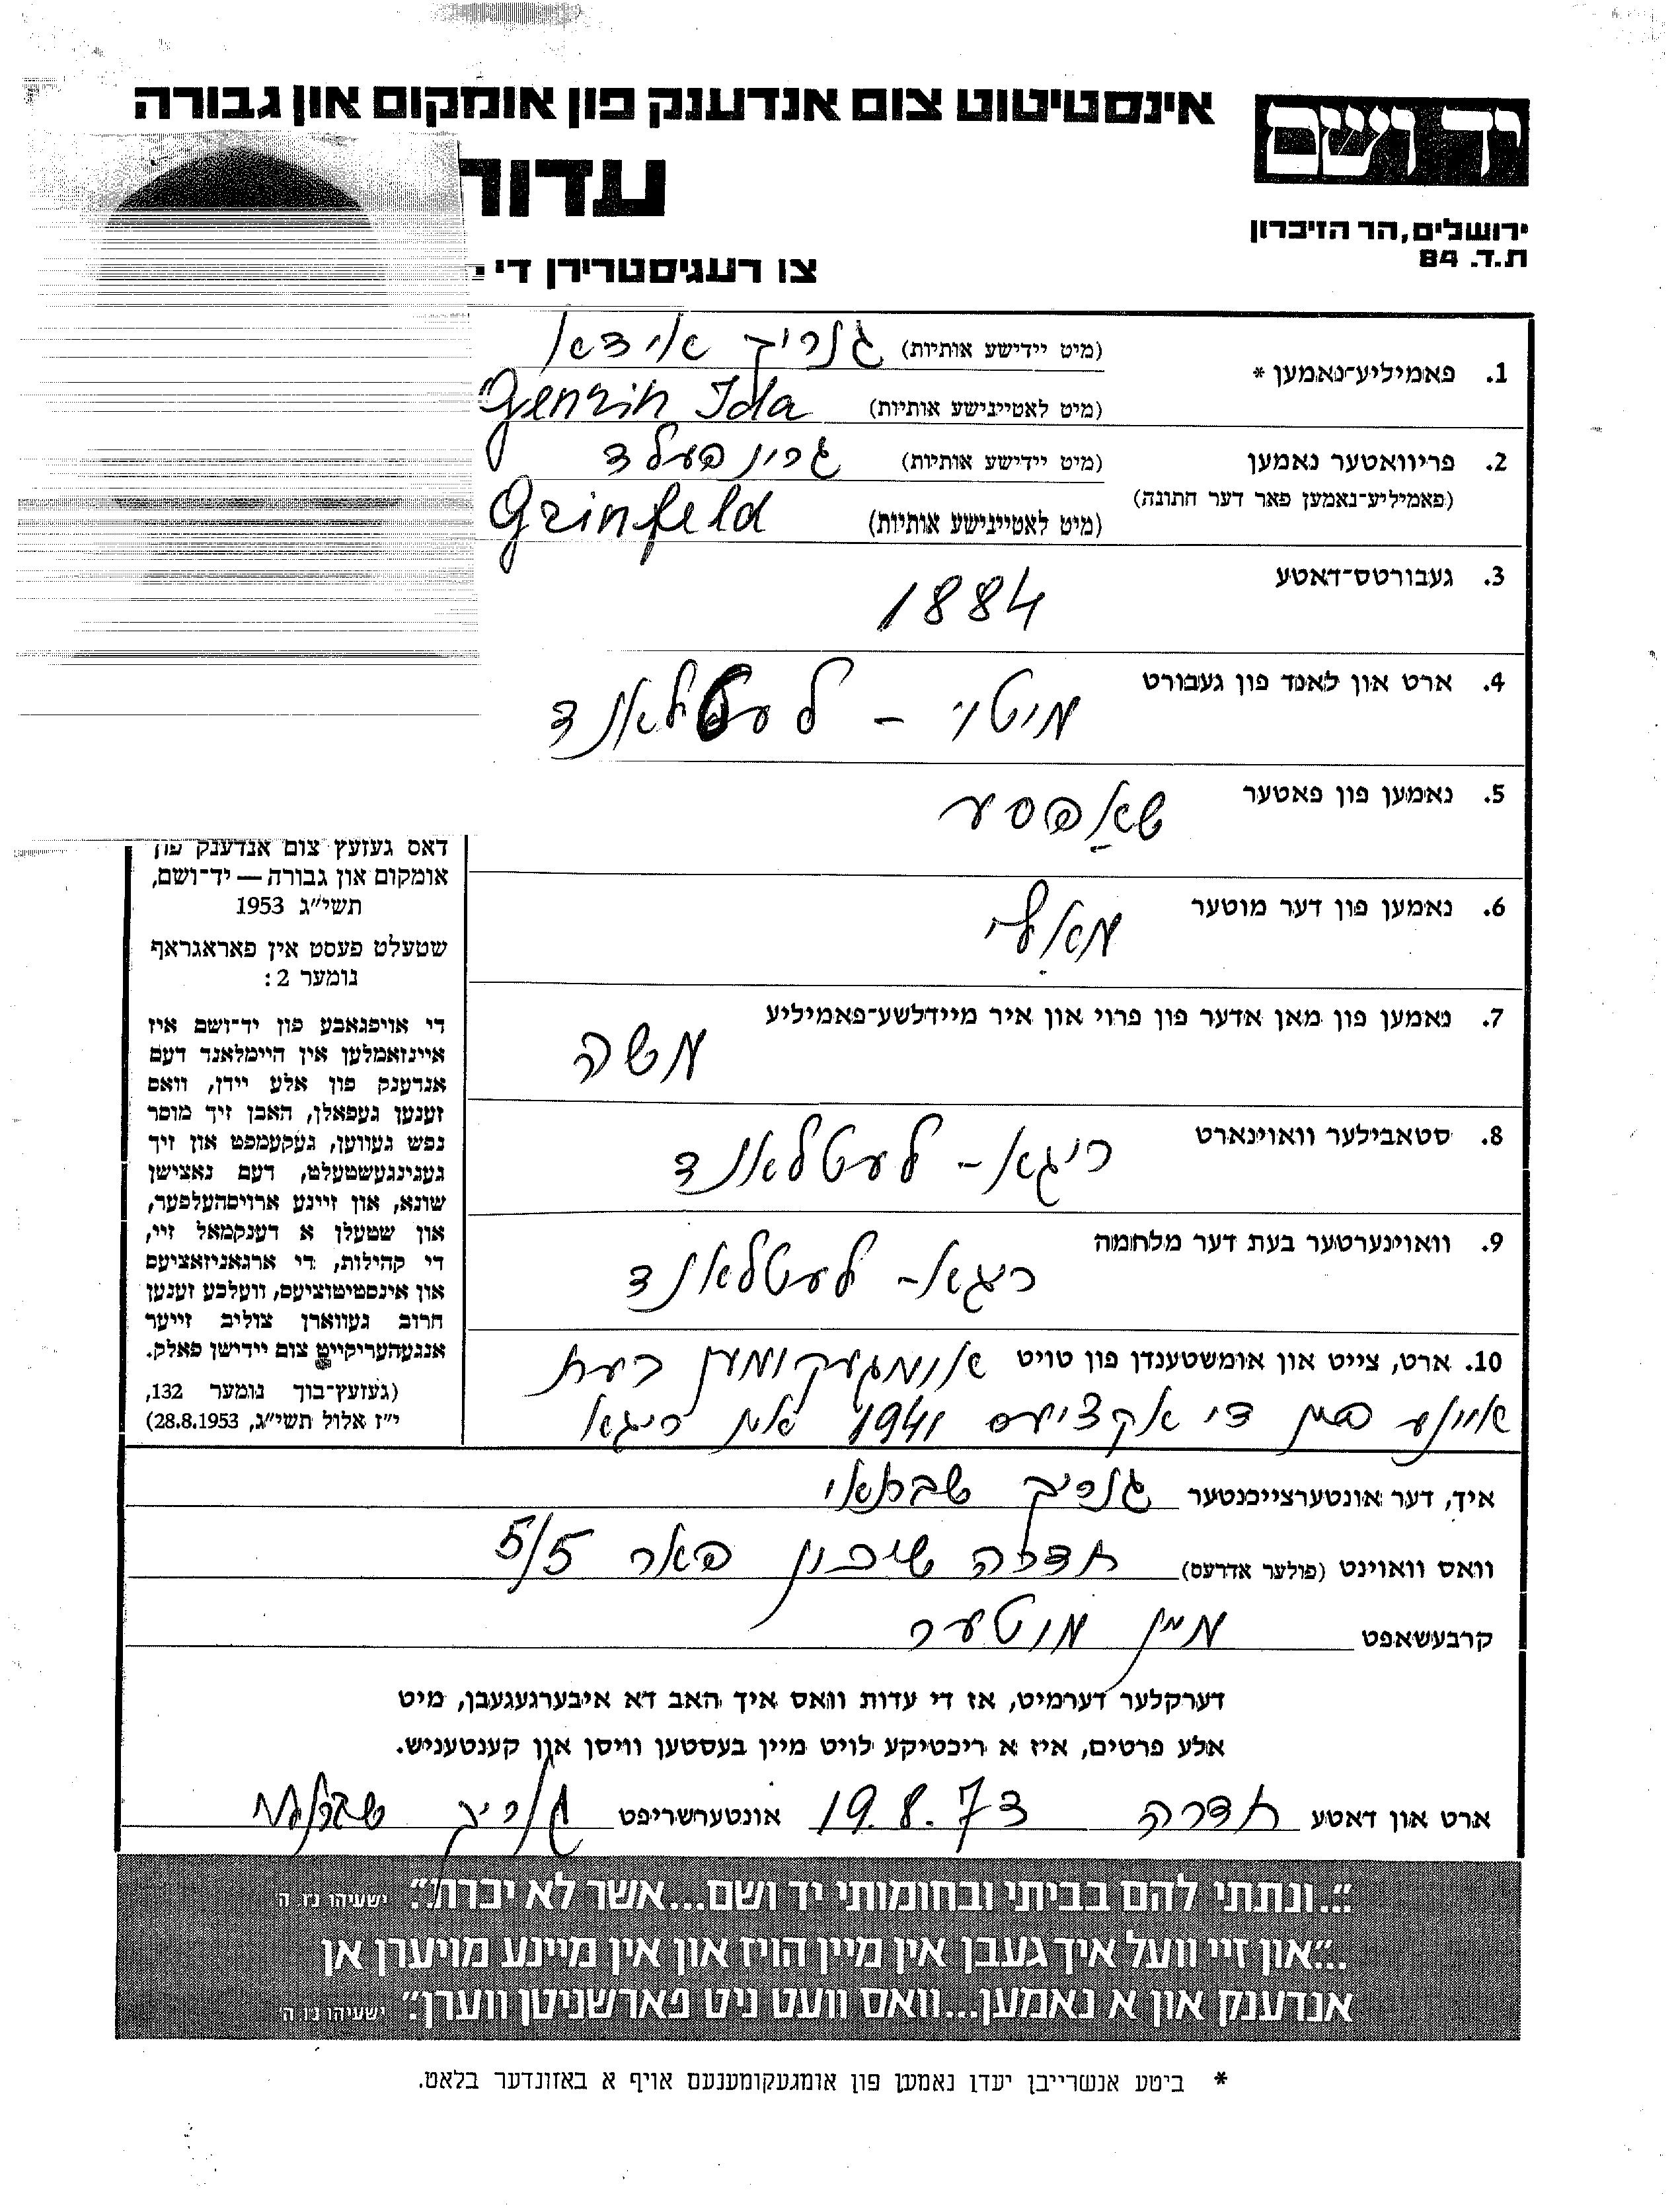 אינסטיטוט צום אנדענק פון אומקום און גבורה
יד ושם
ירושלים, הר הזיכרון
ת.ד. 84
צו רעגיסטרירן די
1. פאמיליע־נאמען *
(מיט יידישע אותיות) גנריך אידא
(מיט לאטייניישע אותיות) Genrih Ida
2. פריוואטער נאמען
(פאמיליע־נאמען פאר דער חתונה)
(מיט יידישע אותיות) גרינפעלד
(מיט לאטייניישע אותיות) Grinfeld
3. געבורטס־דאטע 1884
4. ארט און לאנד פון געבורט
מיטוי - לעטלאנד
5. נאמען פון פאטער שאפסע
6. נאמען פון דער מוטער
7. נאמען פון מאן אדער פון פרוי און איר מיידלשע־פאמיליע
משה
8. סטאבילער וואוינארט ריגא - לעטלאנד
9. וואוינערטער בעת דער מלחמה
ריגא - לעטלאנד
10. ארט, צייט און אומשטענדן פון טויט אומגעקומען בעת
איינע פון די אקציעס 1941 אין ריגא
דאס געזעץ צום אנדענק פון
אומקום און גבורה — יד־ושם,
תשי״ג 1953
שטעלט פעסט אין פאראגראף
נומער 2:
די אויפגאבע פון יד־ושם איז
איינזאמלען אין היימלאנד דעם
אנדענק פון אלע יידן, וואס
זענען געפאלן, האבן זיך מוסר
נפש געווען, געקעמפט און זיך
געגינגעשטעלט, דעם נאצישן
שונא, און זיינע ארויסהעלפער,
און שטעלן א דענקמאל זיי,
די קהילות, די ארגאניזאציעס
און אינסטיטוציעס, וועלכע זענען
חרוב געווארן צוליב זייער
אנגעהעריקייט צום יידישן פאלק.
(געזעץ־בוך נומער 132,
י״ז אלול תשי״ג, 28.8.1953)
איך, דער אונטערצייכנטער גנריך שבתאי
וואס וואוינט (פולער אדרעס) חדרה שיכון פאר 5/5
קרבעשאפט מיין מוטער
דערקלער דערמיט, אז די עדות וואס איך האב דא איבערגעגעבן, מיט
אלע פרטים, איז א ריכטיקע לויט מיין בעסטען וויסן און קענטעניש.
ארט און דאטע חדרה 19.8.73 אונטערשריפט גנריך שבתאי
״...ונתתי להם בביתי ובחומותי יד ושם...אשר לא יכרת״. ישעיהו נ״ו. ה׳
...״און זיי וועל איך געבן אין מיין הויז און אין מיינע מויערן אן
אנדענק און א נאמען...וואס וועט ניט פארשניטן ווערן״. ישעיהו נ״ו. ה׳
* ביטע אנשרייבן יעדן נאמען פון אומגעקומענעם אויף א באזונדער בלאט.